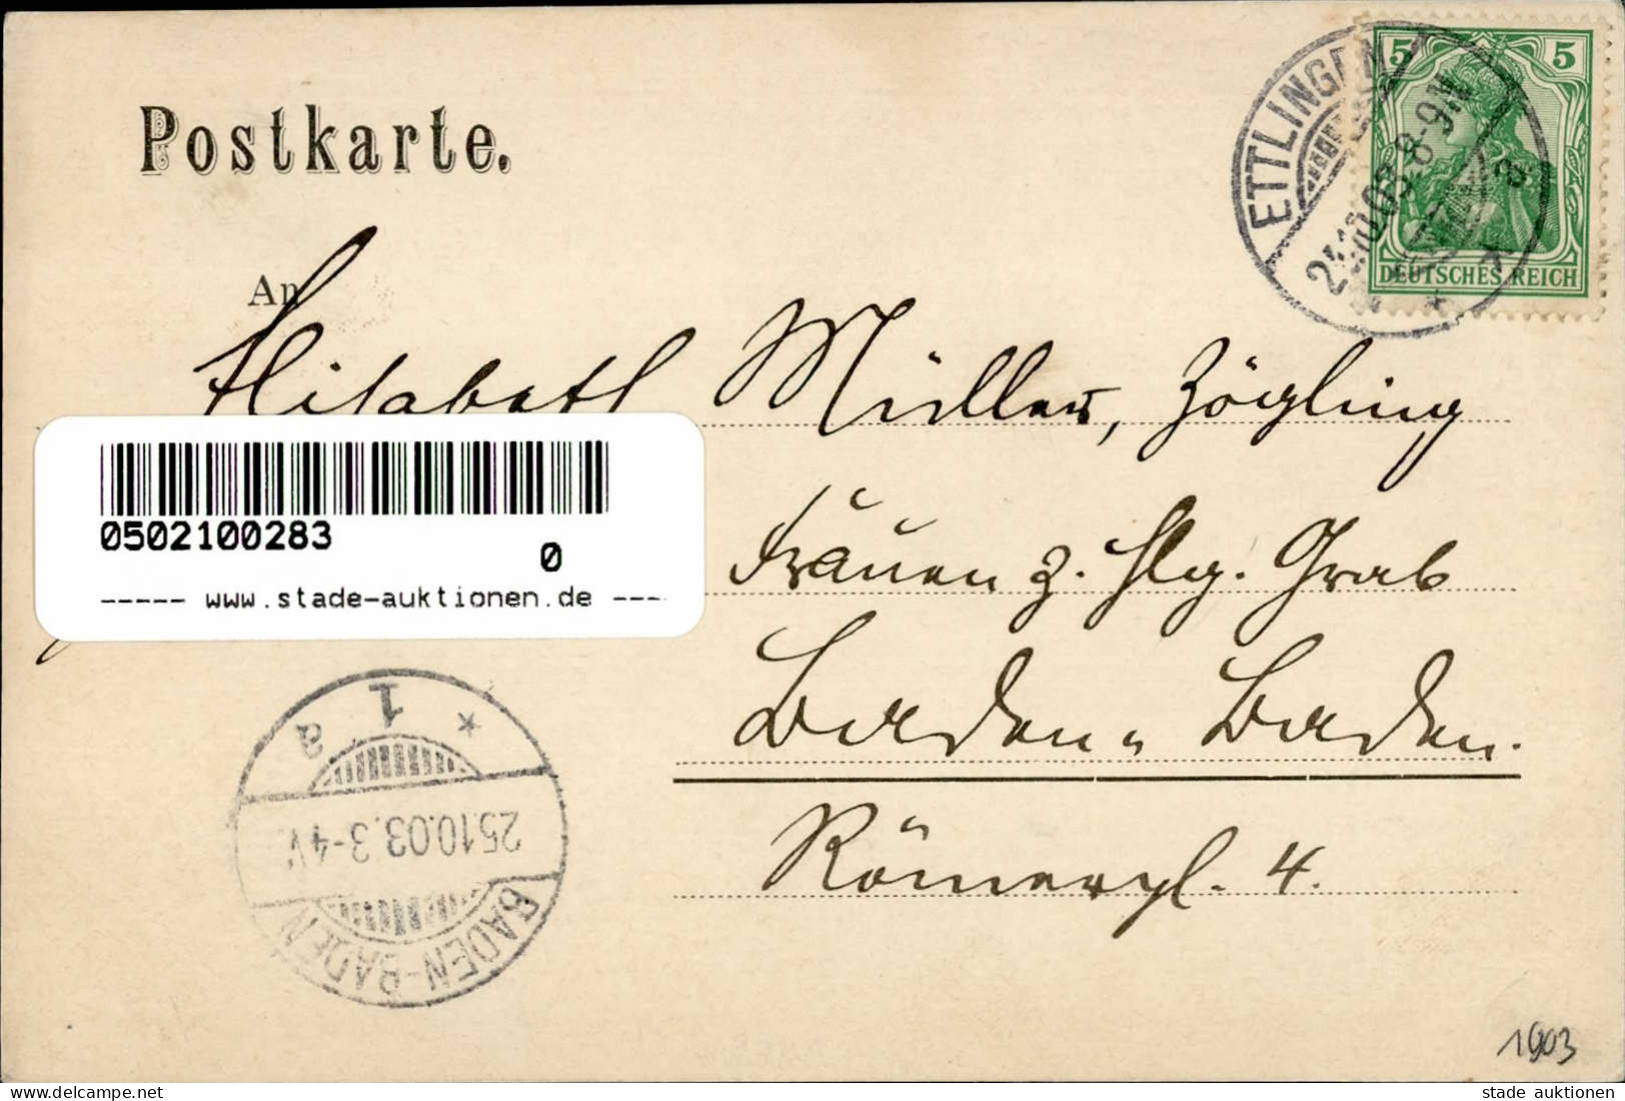 Postkarte.
An
Elisabeth Müller, Zögling
Frauen z. hlg. Grab
Baden-Baden.
Römerpl. 4.
5 5
DEUTSCHES REICH
ETTLINGEN
10.03. 8-9N
a
0502100283
0
----- www.stade-auktionen.de ----
1
a
25.10.03. 3-4V.
BADEN-BADEN
1903
stade auktionen